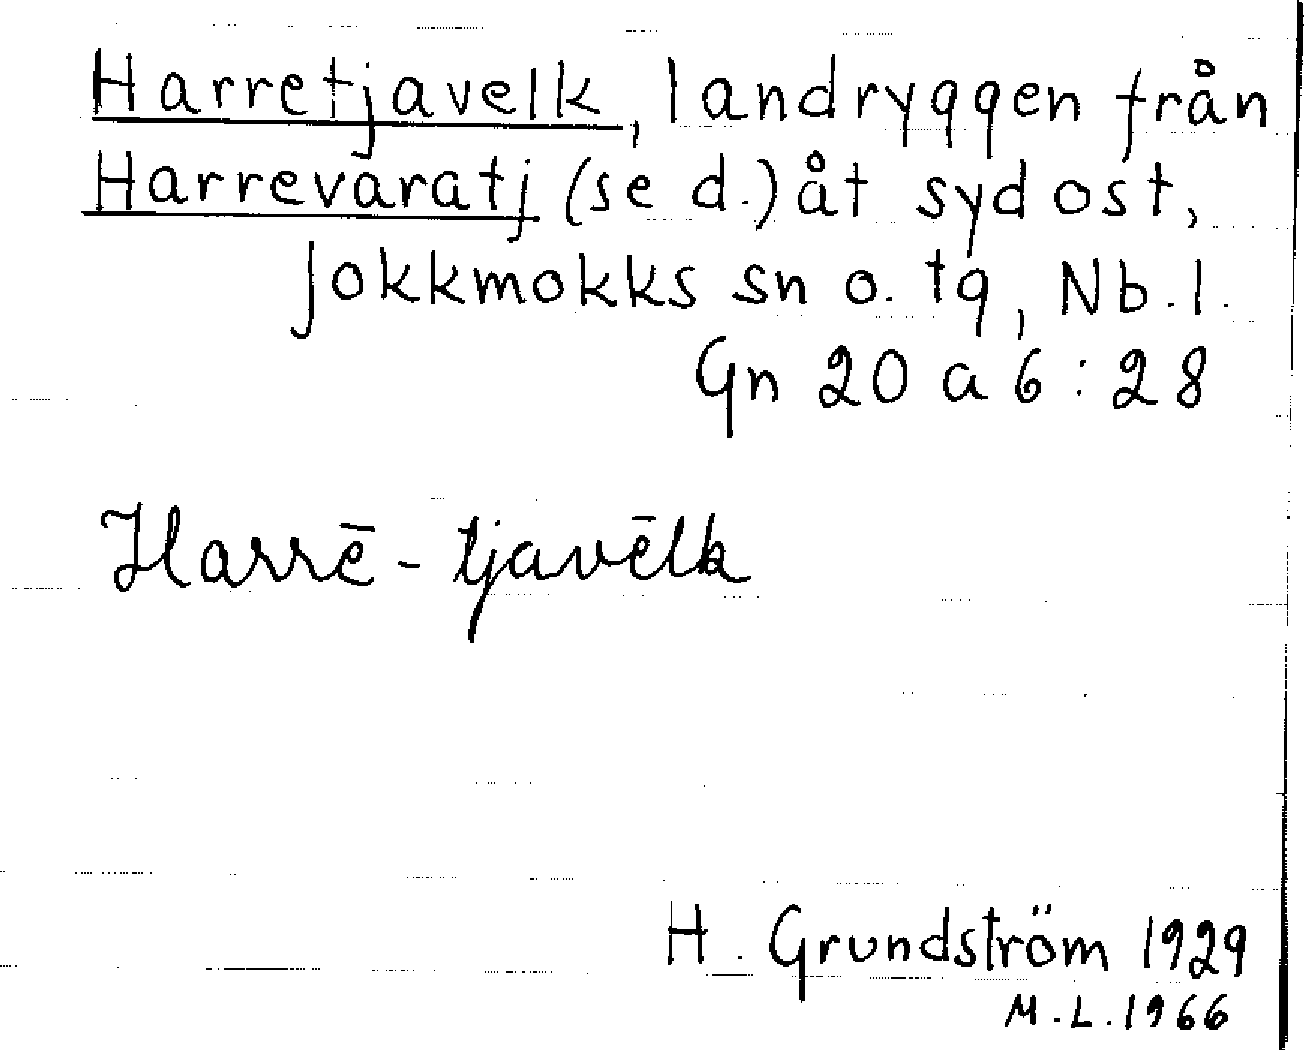 Harretjavelk, landryggen från
Harrevaratj (se d.) åt sydost,
Jokkmokks sn o. tg, Nb.l.
Gn 20 a 6 : 28
Harrē - tjavēlk
H. Grundström 1929
M.L. 1966